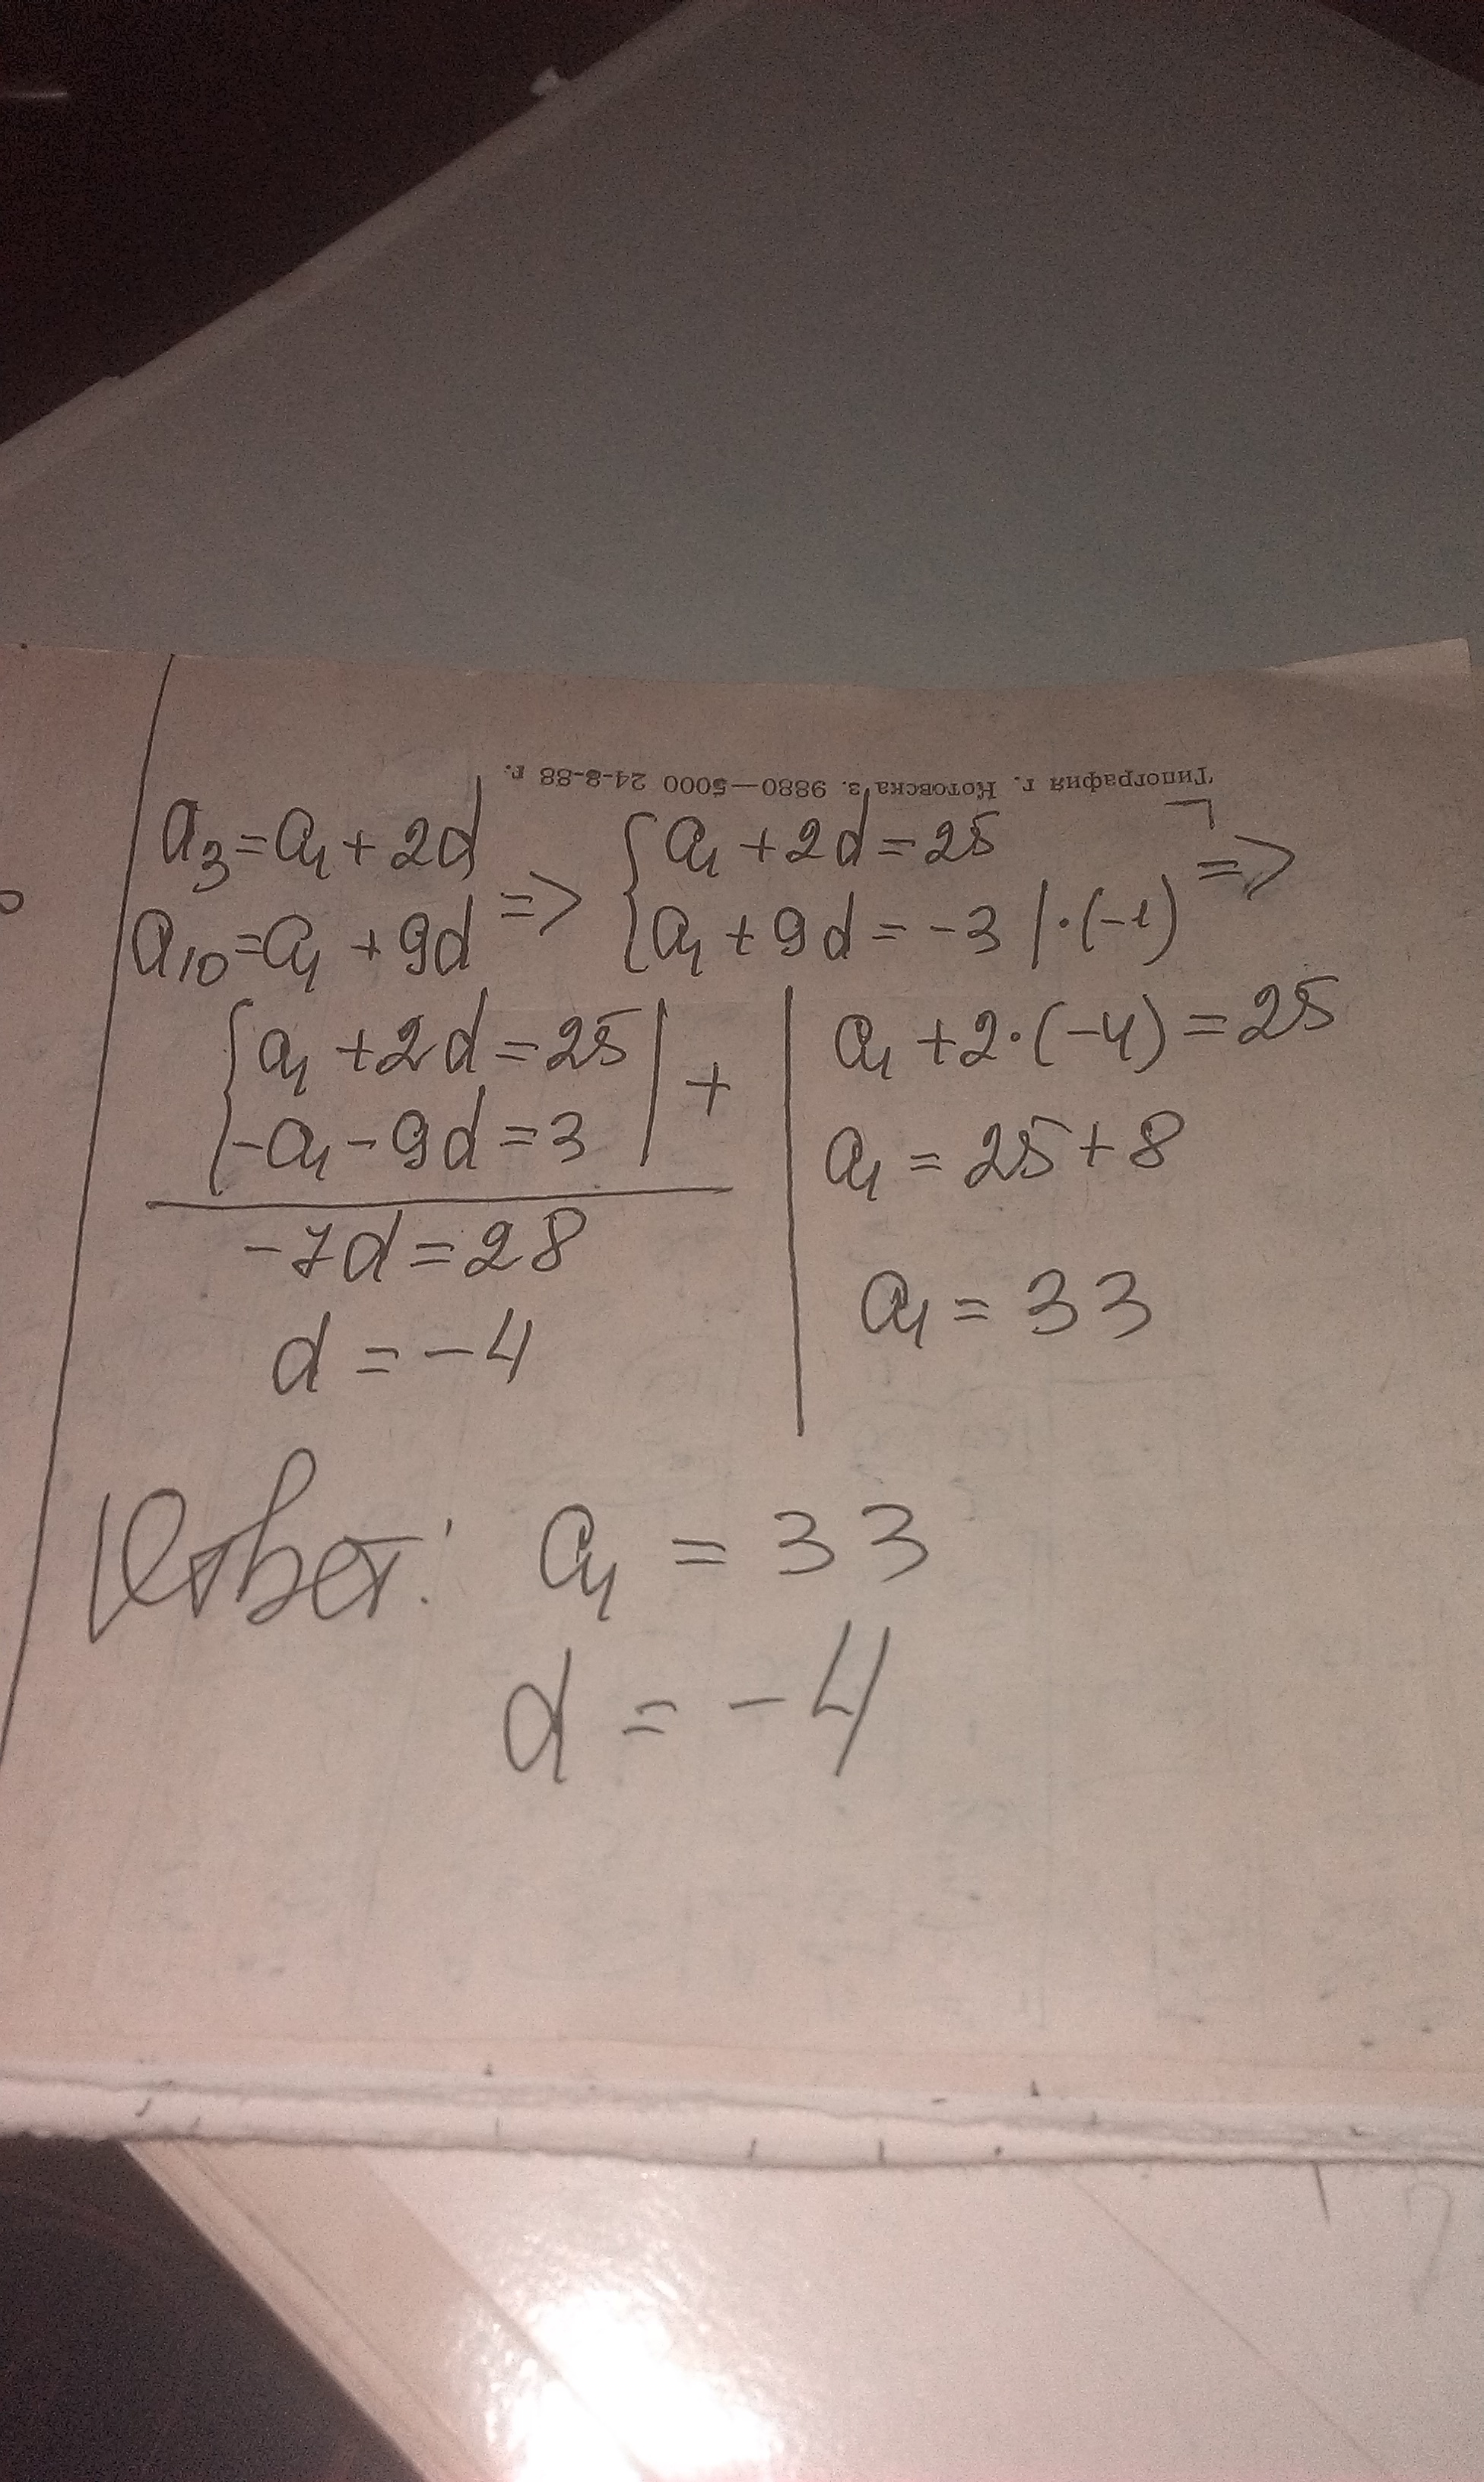 Типография г. Котовска з. 9880—5000 24-8-88 г.
a₃=a₁+2d
a₁₀=a₁+9d
=>
{a₁+2d=25
a₁+9d=-3 |·(-1)
=>
{a₁+2d=25
-a₁-9d=3
| +
-7d=28
d=-4
a₁+2·(-4)=25
a₁=25+8
a₁=33
Ответ: a₁=33
d=-4